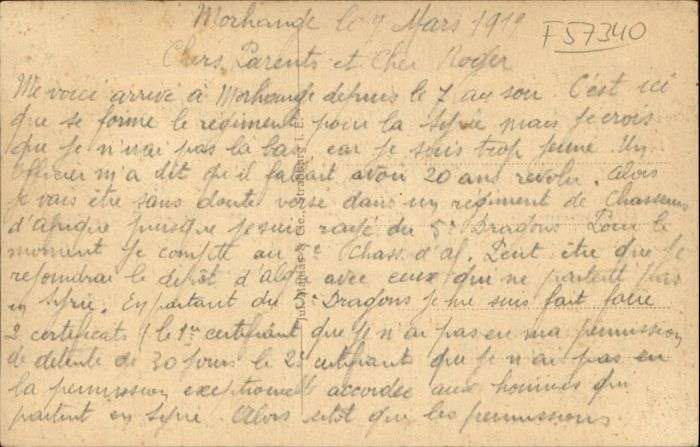 Morhange le 9 Mars 191
F57340
Chers Parents et Cher Roger
Me voici arrivé à Morhange depuis le 7 au soir. C'est ici
que se forme le regiment pour la Syrie mais je crois
que je n'irai pas là bas car je suis trop jeune. Un
Officier m'a dit qu'il fallait avoir 20 ans revolu. Alors
je vais être sans doute versé dans un régiment de Chasseurs
d'afrique puisque je suis rayé du 5e Dragons Pour le
moment je compte au Chass. d'af. Peut être que je
rejoindrai le dépôt d'alger avec ceux qui ne partent pas
en Syrie. En partant du Dragons je me suis fait faire
2 certificats le 1er certifiant que je n'ai pas eu ma permission
de détente de 30 jours le 2e certifiant que je n'ai pas eu
la permission exeptionnelle accordée aux hommes qui
partent en Syrie. Alors sitôt que les permissions